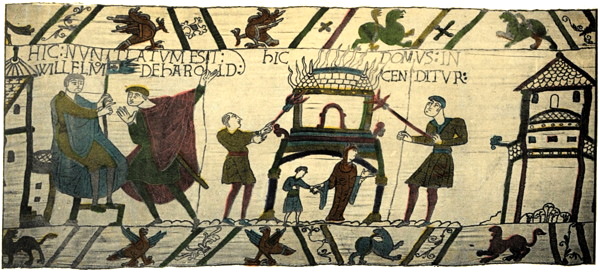 HIC: NUNTIATUM EST:
WILLELMO DE HAROLD:
hIC DOMUS: IN
CENDITUR: